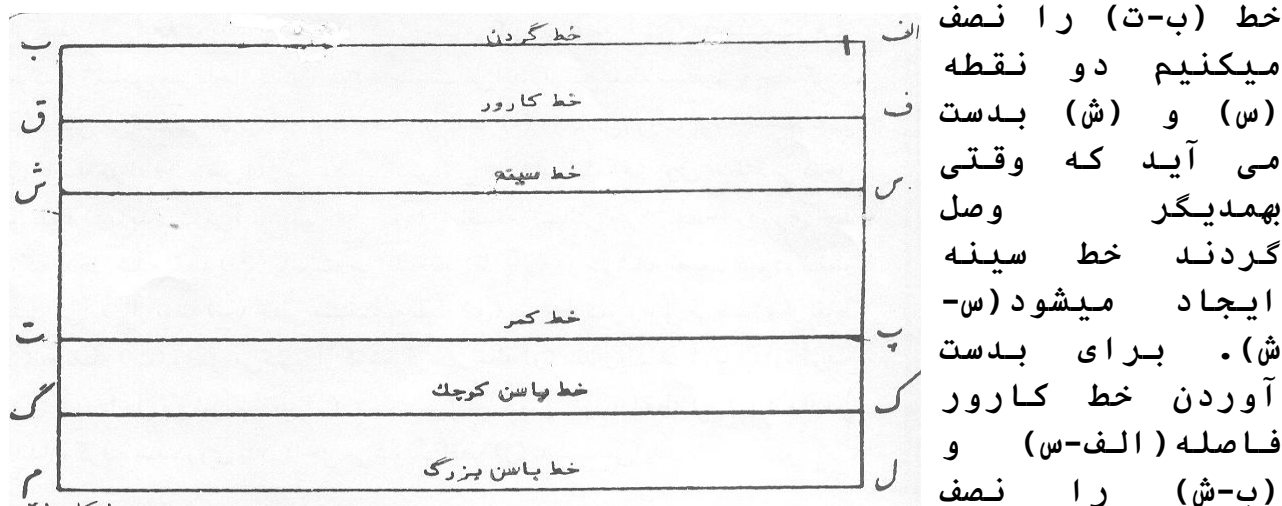 خط (ب-ت) را نصف
میکنیم دو نقطه
(س) و (ش) بدست
می آید که وقتی
بهمدیگر وصل
گردند خط سینه
ایجاد میشود(س-
ش). برای بدست
آوردن خط کارور
فاصله(الف-س) و
(ب-ش) را نصف
الف
خط گردن
ب
ف
خط کارور
ق
س
خط سینه
ش
پ
خط کمر
ت
ک
خط باسن کوچک
گ
ل
خط باسن بزرگ
م